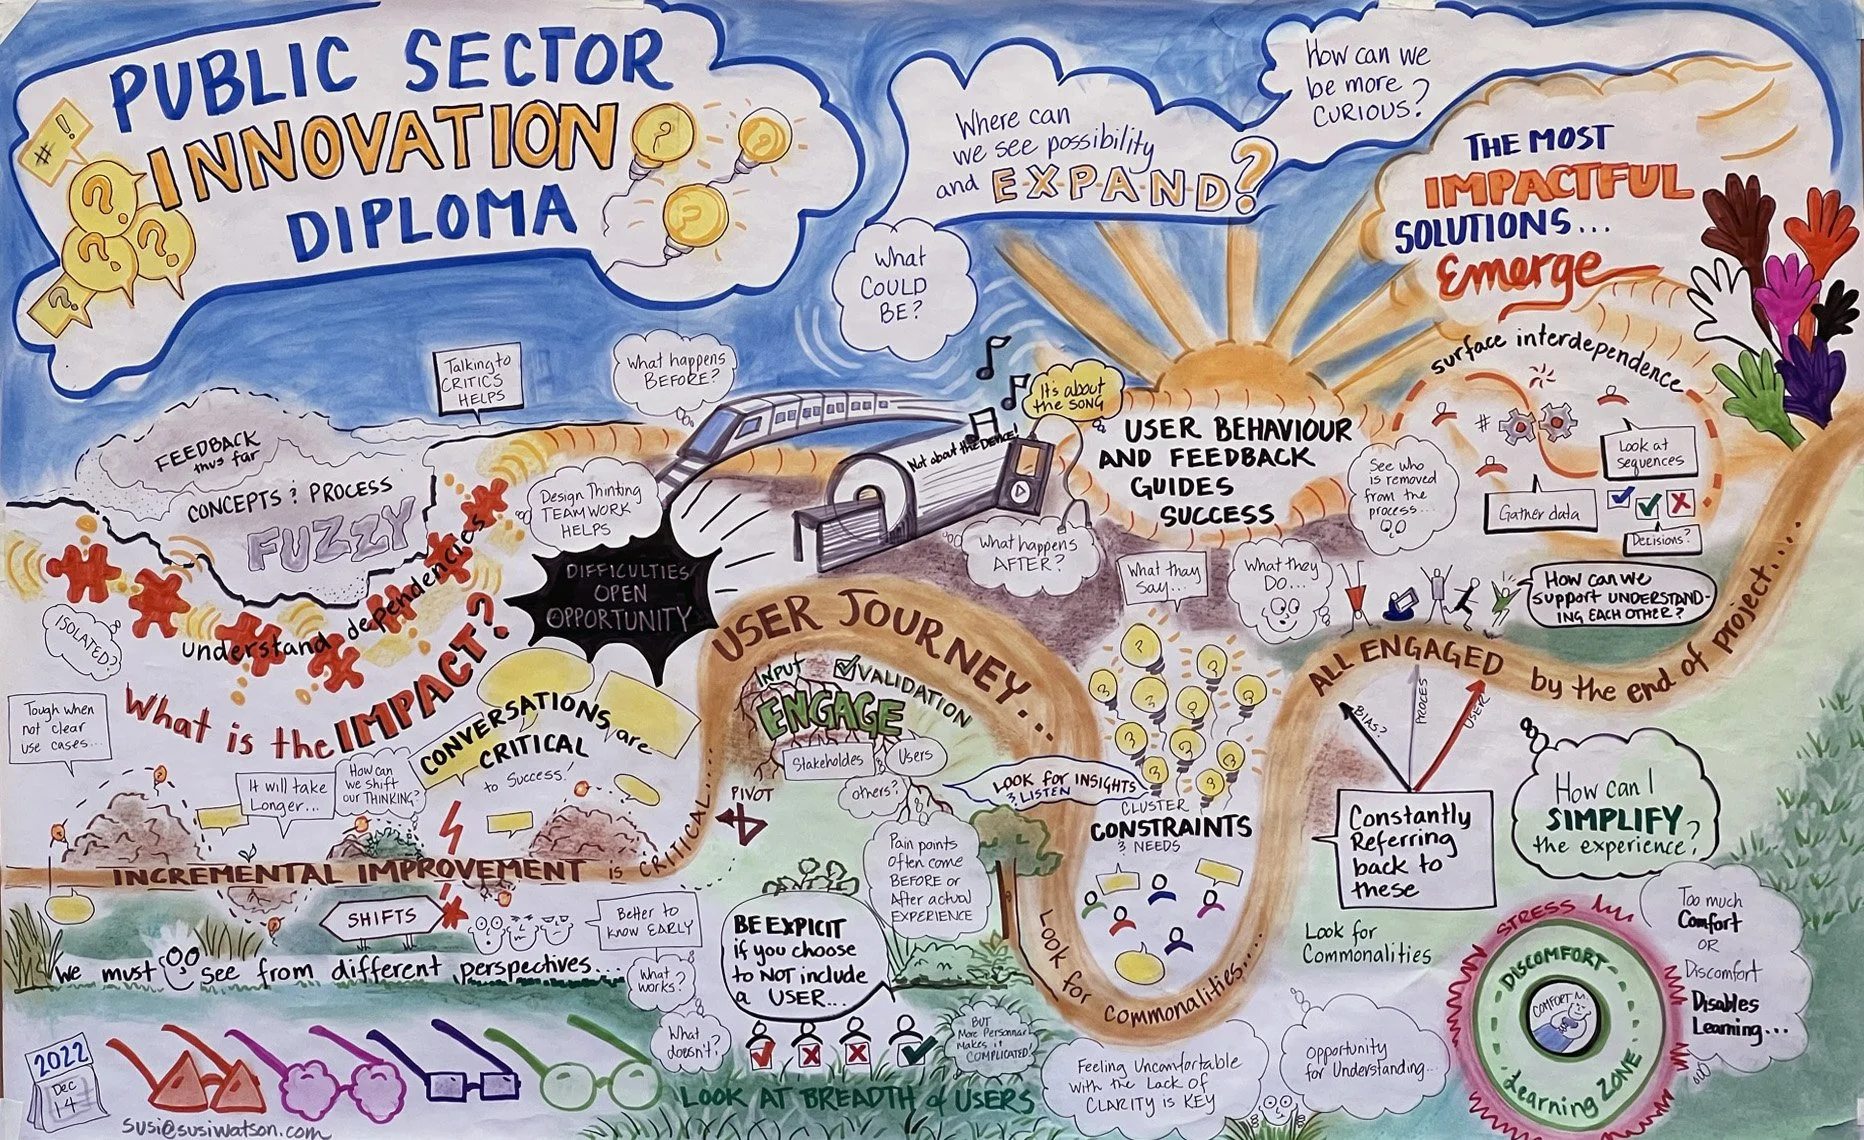 PUBLIC SECTOR
INNOVATION
DIPLOMA
# !
?
?
?
?
?
?
?
Where can
we see possibility
and E-X-P-A-N-D?
How can we
be more
CURIOUS?
What
COULD
BE?
THE MOST
IMPACTFUL
SOLUTIONS...
Emerge
surface interdependence
#
Look at
sequences
Gather data
Decisions?
See who
is removed
from the
process...
Talking to
CRITICS
HELPS
What happens
BEFORE?
It's about
the SONG
Not about the DEVICE!
What happens
AFTER?
USER BEHAVIOUR
AND FEEDBACK
GUIDES
SUCCESS
FEEDBACK
thus far
CONCEPTS & PROCESS
FUZZY
understand dependencies
ISOLATED?
Design Thinking
TEAMWORK
HELPS
DIFFICULTIES
OPEN
OPPORTUNITY
What is the IMPACT?
Tough when
not clear
use cases...
It will take
Longer...
How can
we shift
our THINKING?
CONVERSATIONS are
CRITICAL
to Success!
INCREMENTAL IMPROVEMENT is CRITICAL...
USER JOURNEY...
INPUT
VALIDATION
ENGAGE
Stakeholdes
&
Users
others?
PIVOT
LOOK for INSIGHTS
& LISTEN
What they
say...
What they
DO...
CLUSTER
CONSTRAINTS
& NEEDS
Look for commonalities...
ALL ENGAGED by the end of project....
How can we
support UNDERSTAND-
ING EACH OTHER?
BIAS?
PROCES
USER
Constantly
Referring
back to
these
Look for
Commonalities
How can I
SIMPLIFY
the experience?
SHIFTS
Better to
know EARLY
we must see from different perspectives...
What
works?
What
doesn't?
BE EXPICIT
if you choose
to NOT include
a USER...
Pain points
often come
BEFORE or
After actual
EXPERIENCE
BUT
More Personnar
Makes it
COMPLICATED!
LOOK AT BREADTH of USERS
Feeling Uncomfortable
with the Lack of
CLARITY is KEY
Opportunity
for Understanding...
STRESS
DISCOMFORT
COMFORT
Learning ZONE
Too much
Comfort
OR
Discomfort
Disables
Learning...
2022
Dec
14
susi@susiwatson.com